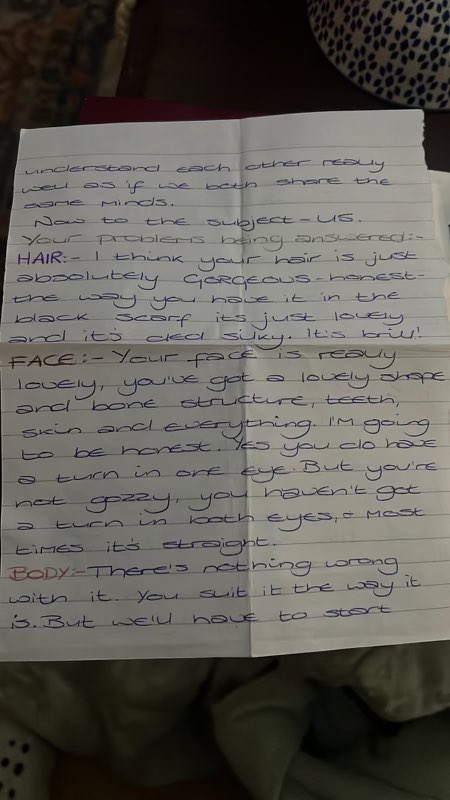 understand each other really
well as if we both share the
same minds.
Now to the subject - us.
Your problems being answered:-
HAIR:- I think your hair is just
absolutely Gorgeous-honest-
the way you have it in the
black scarf its just lovely
and it's clad silky. It's brill!
FACE:- Your face is really
lovely, you've got a lovely shape
and bone structure, teeth,
skin and everything. I'M going
to be honest. Yes you do have
a turn in one eye. But you're
not gozzy, you haven't got
a turn in both eyes, + Most
times it's straight.
BODY:- There's nothing wrong
with it. You suit it the way it
is. But we'll have to start